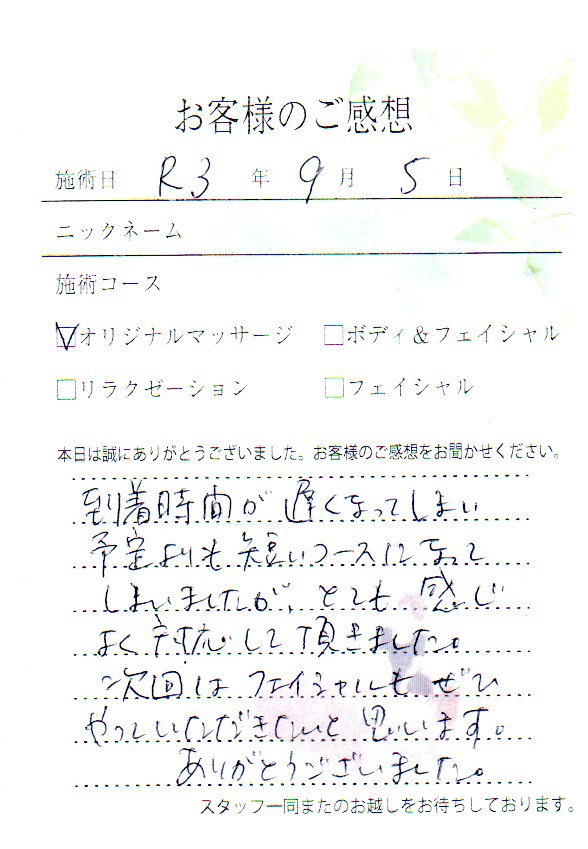 お客様のご感想
施術日 R3 年 9 月 5 日
ニックネーム
施術コース
オリジナルマッサージ ボディ&フェイシャル
リラクゼーション フェイシャル
本日は誠にありがとうございました。お客様のご感想をお聞かせください。
到着時間が遅くなってしまい
予定よりも短いコースになって
しまいましたが、とても感じ
よく対応して頂きました。
次回はフェイシャルもぜひ
やっていただきたいと思います。
ありがとうございました。
スタッフ一同またのお越しをお待ちしております。